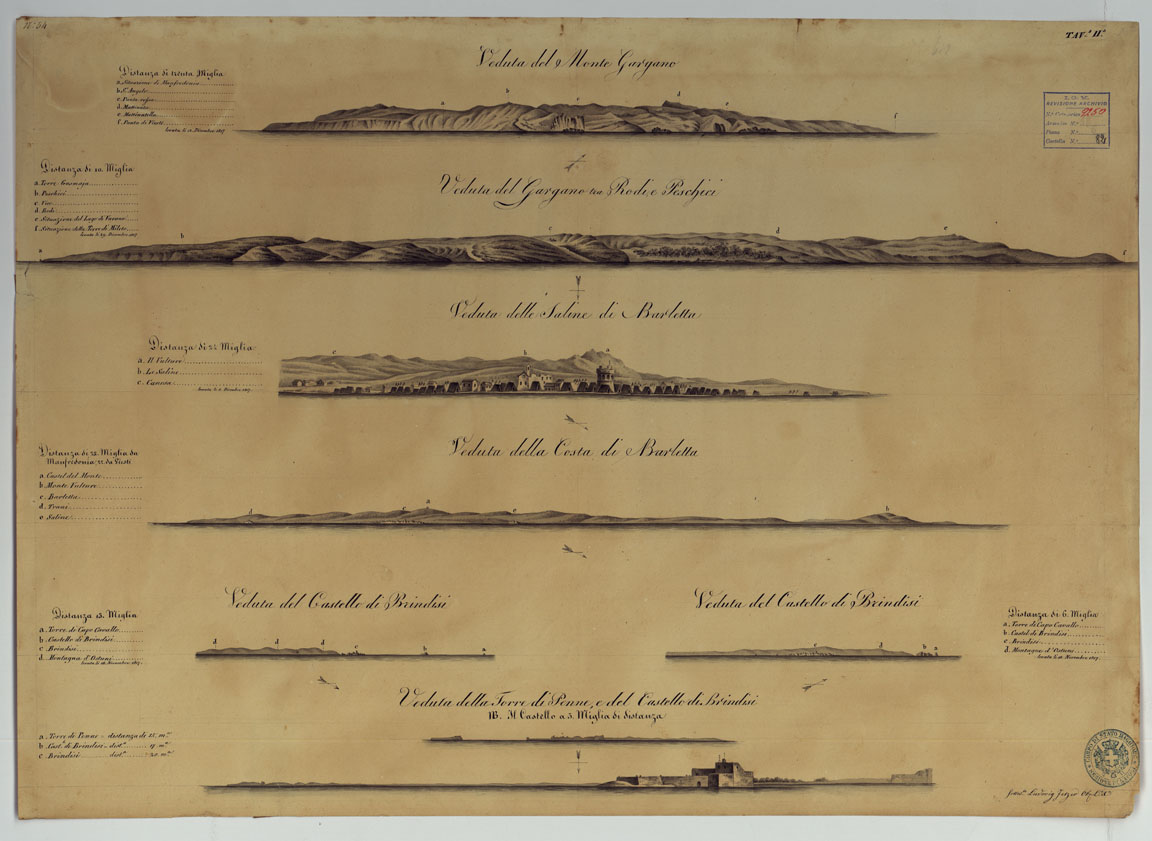 N.º 34
TAV.ª II.ª
Veduta del Monte Gargano
Distanza di trenta Miglia
a. Situazione di Manfredonia
b. S.t Angelo
c. Ponte
d. Mattinata
e. Mattinatella
f. Punta di Viesti
levata li Dicembre 1817
I. G. M.
REVISIONE ARCHIVIO
N.º 9250
Armadio N.º
N.º
Cartella N.º
Veduta del Gargano tra Rodi, e Peschici
Distanza di 10. Miglia
a. Torre
b. Peschici
c. Vico
d. Rodi
e. Situazione del Lago di Varano
f. Situazione della Torre di Mileto
levata li 29. Dicembre 1817
Veduta delle Saline di Barletta
Distanza di Miglia
a. Il Vulture
b. Le Saline
c. Canosa
Veduta della Costa di Barletta
Distanza di 28. Miglia da
Manfredonia 22. da Viesti
a. Castel del Monte
b. Monte Vulture
c. Barletta
d. Trani
e. Saline
Veduta del Castello di Brindisi
Distanza 13. Miglia
a. Torre di Capo Cavallo
b. Castello di Brindisi
c. Brindisi
d. Montagna d'Ostuni
Veduta del Castello di Brindisi
Distanza di 6. Miglia
a. Torre di Capo Cavallo
b. Castel di Brindisi
c. Brindisi
d. Montagna d'Ostuni
Veduta della Torre di Penne, e del Castello di Brindisi
Il Castello a 3. Miglia di distanza
a. Torre di Penne - distanza di 15. m.a
b. Cast.o di Brindisi - dist.a 17. m.a
c. Brindisi dist.a 20. m.a
Ludwig Jetzer